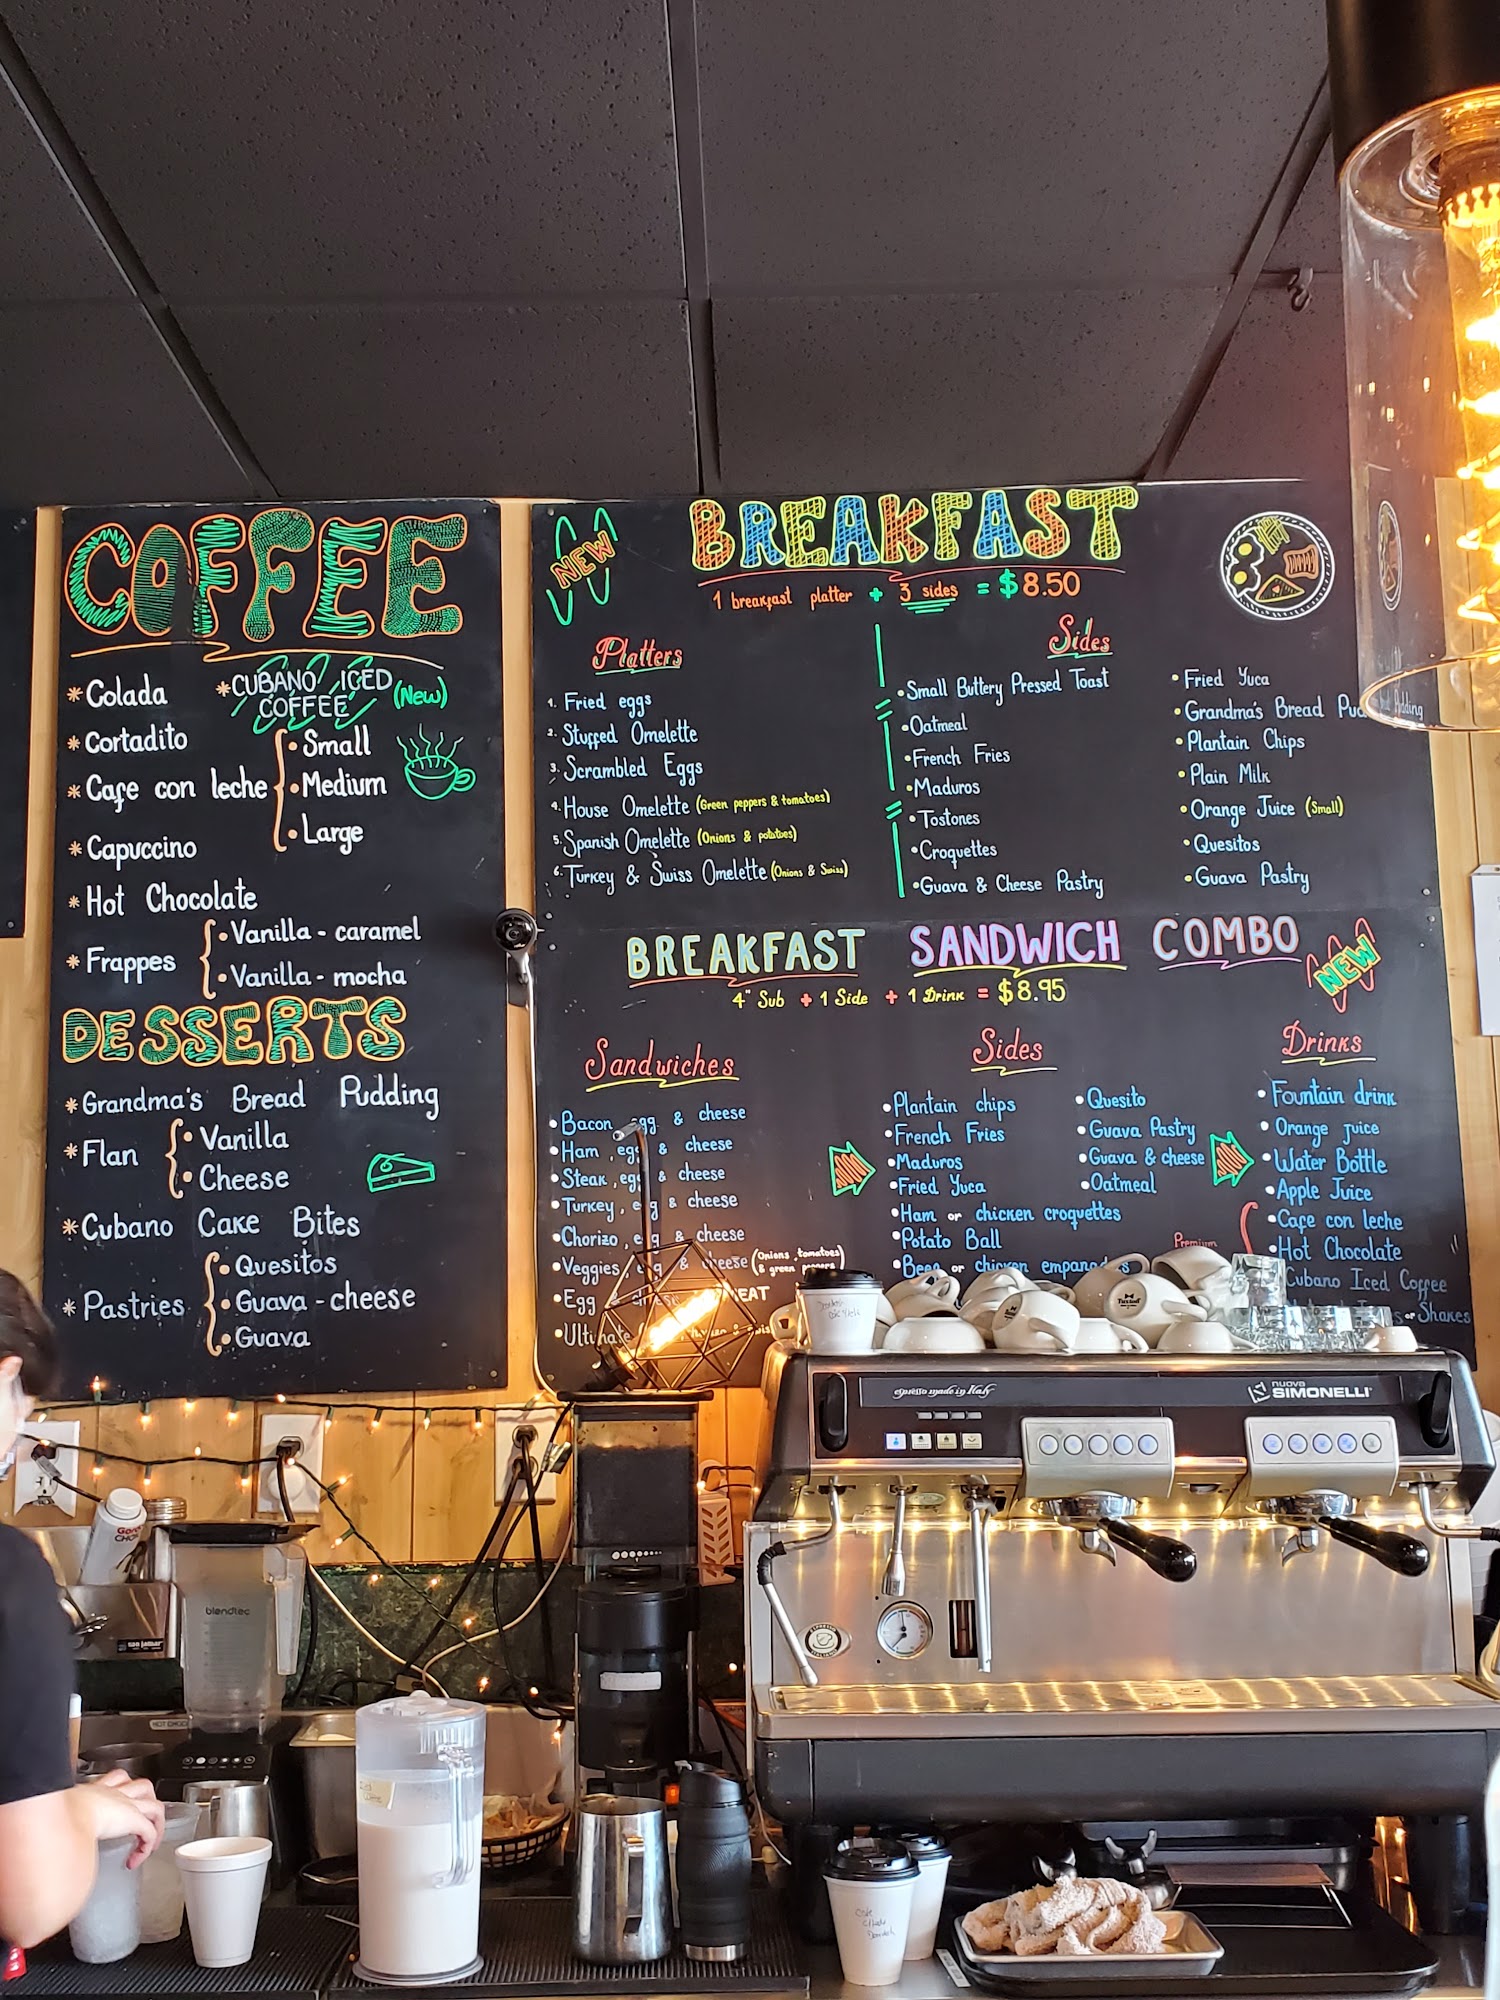 COFFEE
* Colada
* CUBANO ICED COFFEE (New)
* Cortadito
* Cafe con leche
• Small
• Medium
• Large
* Capuccino
* Hot Chocolate
* Frappes
• Vanilla - caramel
• Vanilla - mocha
DESSERTS
* Grandma's Bread Pudding
* Flan
• Vanilla
• Cheese
* Cubano Cake Bites
* Pastries
• Quesitos
• Guava - cheese
• Guava
NEW
BREAKFAST
1 breakfast platter + 3 sides = $8.50
Platters
1. Fried eggs
2. Stuffed Omelette
3. Scrambled Eggs
4. House Omelette (Green peppers & tomatoes)
5. Spanish Omelette (Onions & potatoes)
6. Turkey & Swiss Omelette (Onions & Swiss)
Sides
• Small Buttery Pressed Toast
• Oatmeal
• French Fries
• Maduros
• Tostones
• Croquettes
• Guava & Cheese Pastry
• Fried Yuca
• Grandma's Bread
• Plantain Chips
• Plain Milk
• Orange Juice (Small)
• Quesitos
• Guava Pastry
BREAKFAST SANDWICH COMBO
NEW
4" Sub + 1 Side + 1 Drink = $8.95
Sandwiches
• Bacon, egg & cheese
• Ham, egg & cheese
• Steak, egg & cheese
• Turkey, egg & cheese
• Chorizo, egg & cheese
• Veggies, egg & cheese (Onions, tomatoes & green peppers)
• Egg
• Ultimate
Sides
• Plantain chips
• French Fries
• Maduros
• Fried Yuca
• Ham or chicken croquettes
• Potato Ball
• Beef or chicken empanadas
• Quesito
• Guava Pastry
• Guava & cheese
• Oatmeal
Drinks
• Fountain drink
• Orange juice
• Water Bottle
• Apple Juice
Premium
• Cafe con leche
• Hot Chocolate
Cubano Iced Coffee
or Shakes
espresso made in Italy
nuova
SIMONELLI
blendtec
HOT CHOCO